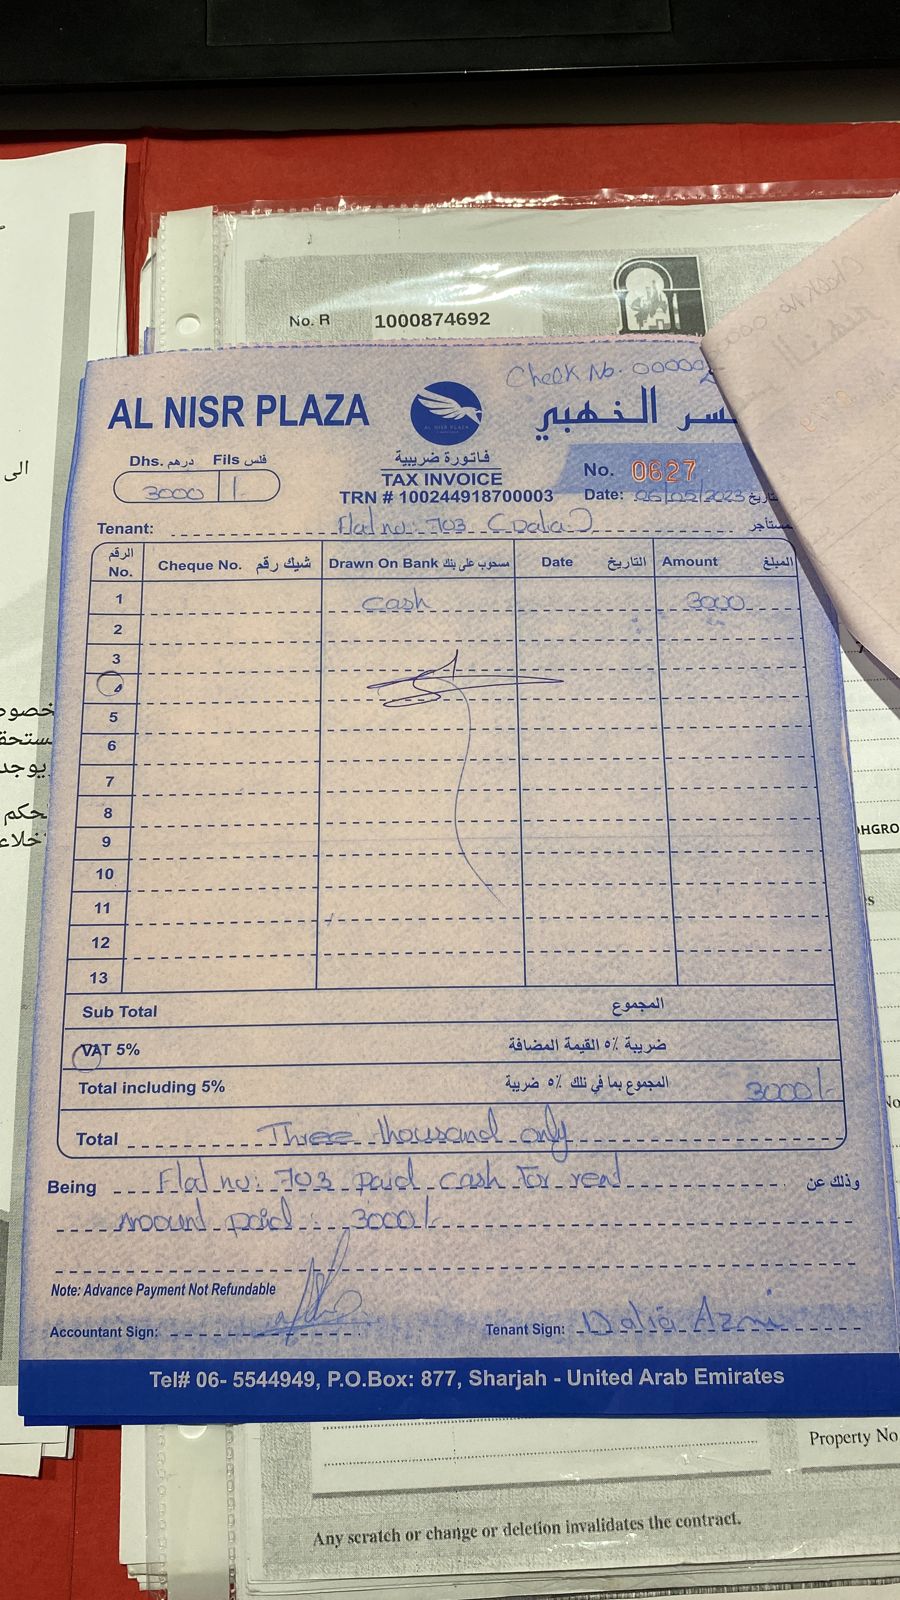 No. R 1000874692
Check No. 00000
AL NISR PLAZA
AL NISR PLAZA
سر الذهبي
Dhs. درهم Fils فلس
3000 /-
فاتورة ضريبية
TAX INVOICE
TRN # 100244918700003
No. 0627
Date: 06/02/2023
Tenant: Flat no: 703 (Dalia) مستأجر
الرقم No. Cheque No. شيك رقم Drawn On Bank مسحوب على بنك Date التاريخ Amount المبلغ
1 cash 3000
2
3
4
5
6
7
8
9
10
11
12
13
Sub Total المجموع
VAT 5% ضريبة ٥٪ القيمة المضافة
Total including 5% المجموع بما في ذلك ٥٪ ضريبة 3000/-
Total Three thousand only
Being Flat no: 703 paid cash for rent وذلك عن
amount paid : 3000/-
Note: Advance Payment Not Refundable
Accountant Sign: Tenant Sign: Dalia Azmi
Tel# 06- 5544949, P.O.Box: 877, Sharjah - United Arab Emirates
Property No
Any scratch or change or deletion invalidates the contract.
الى